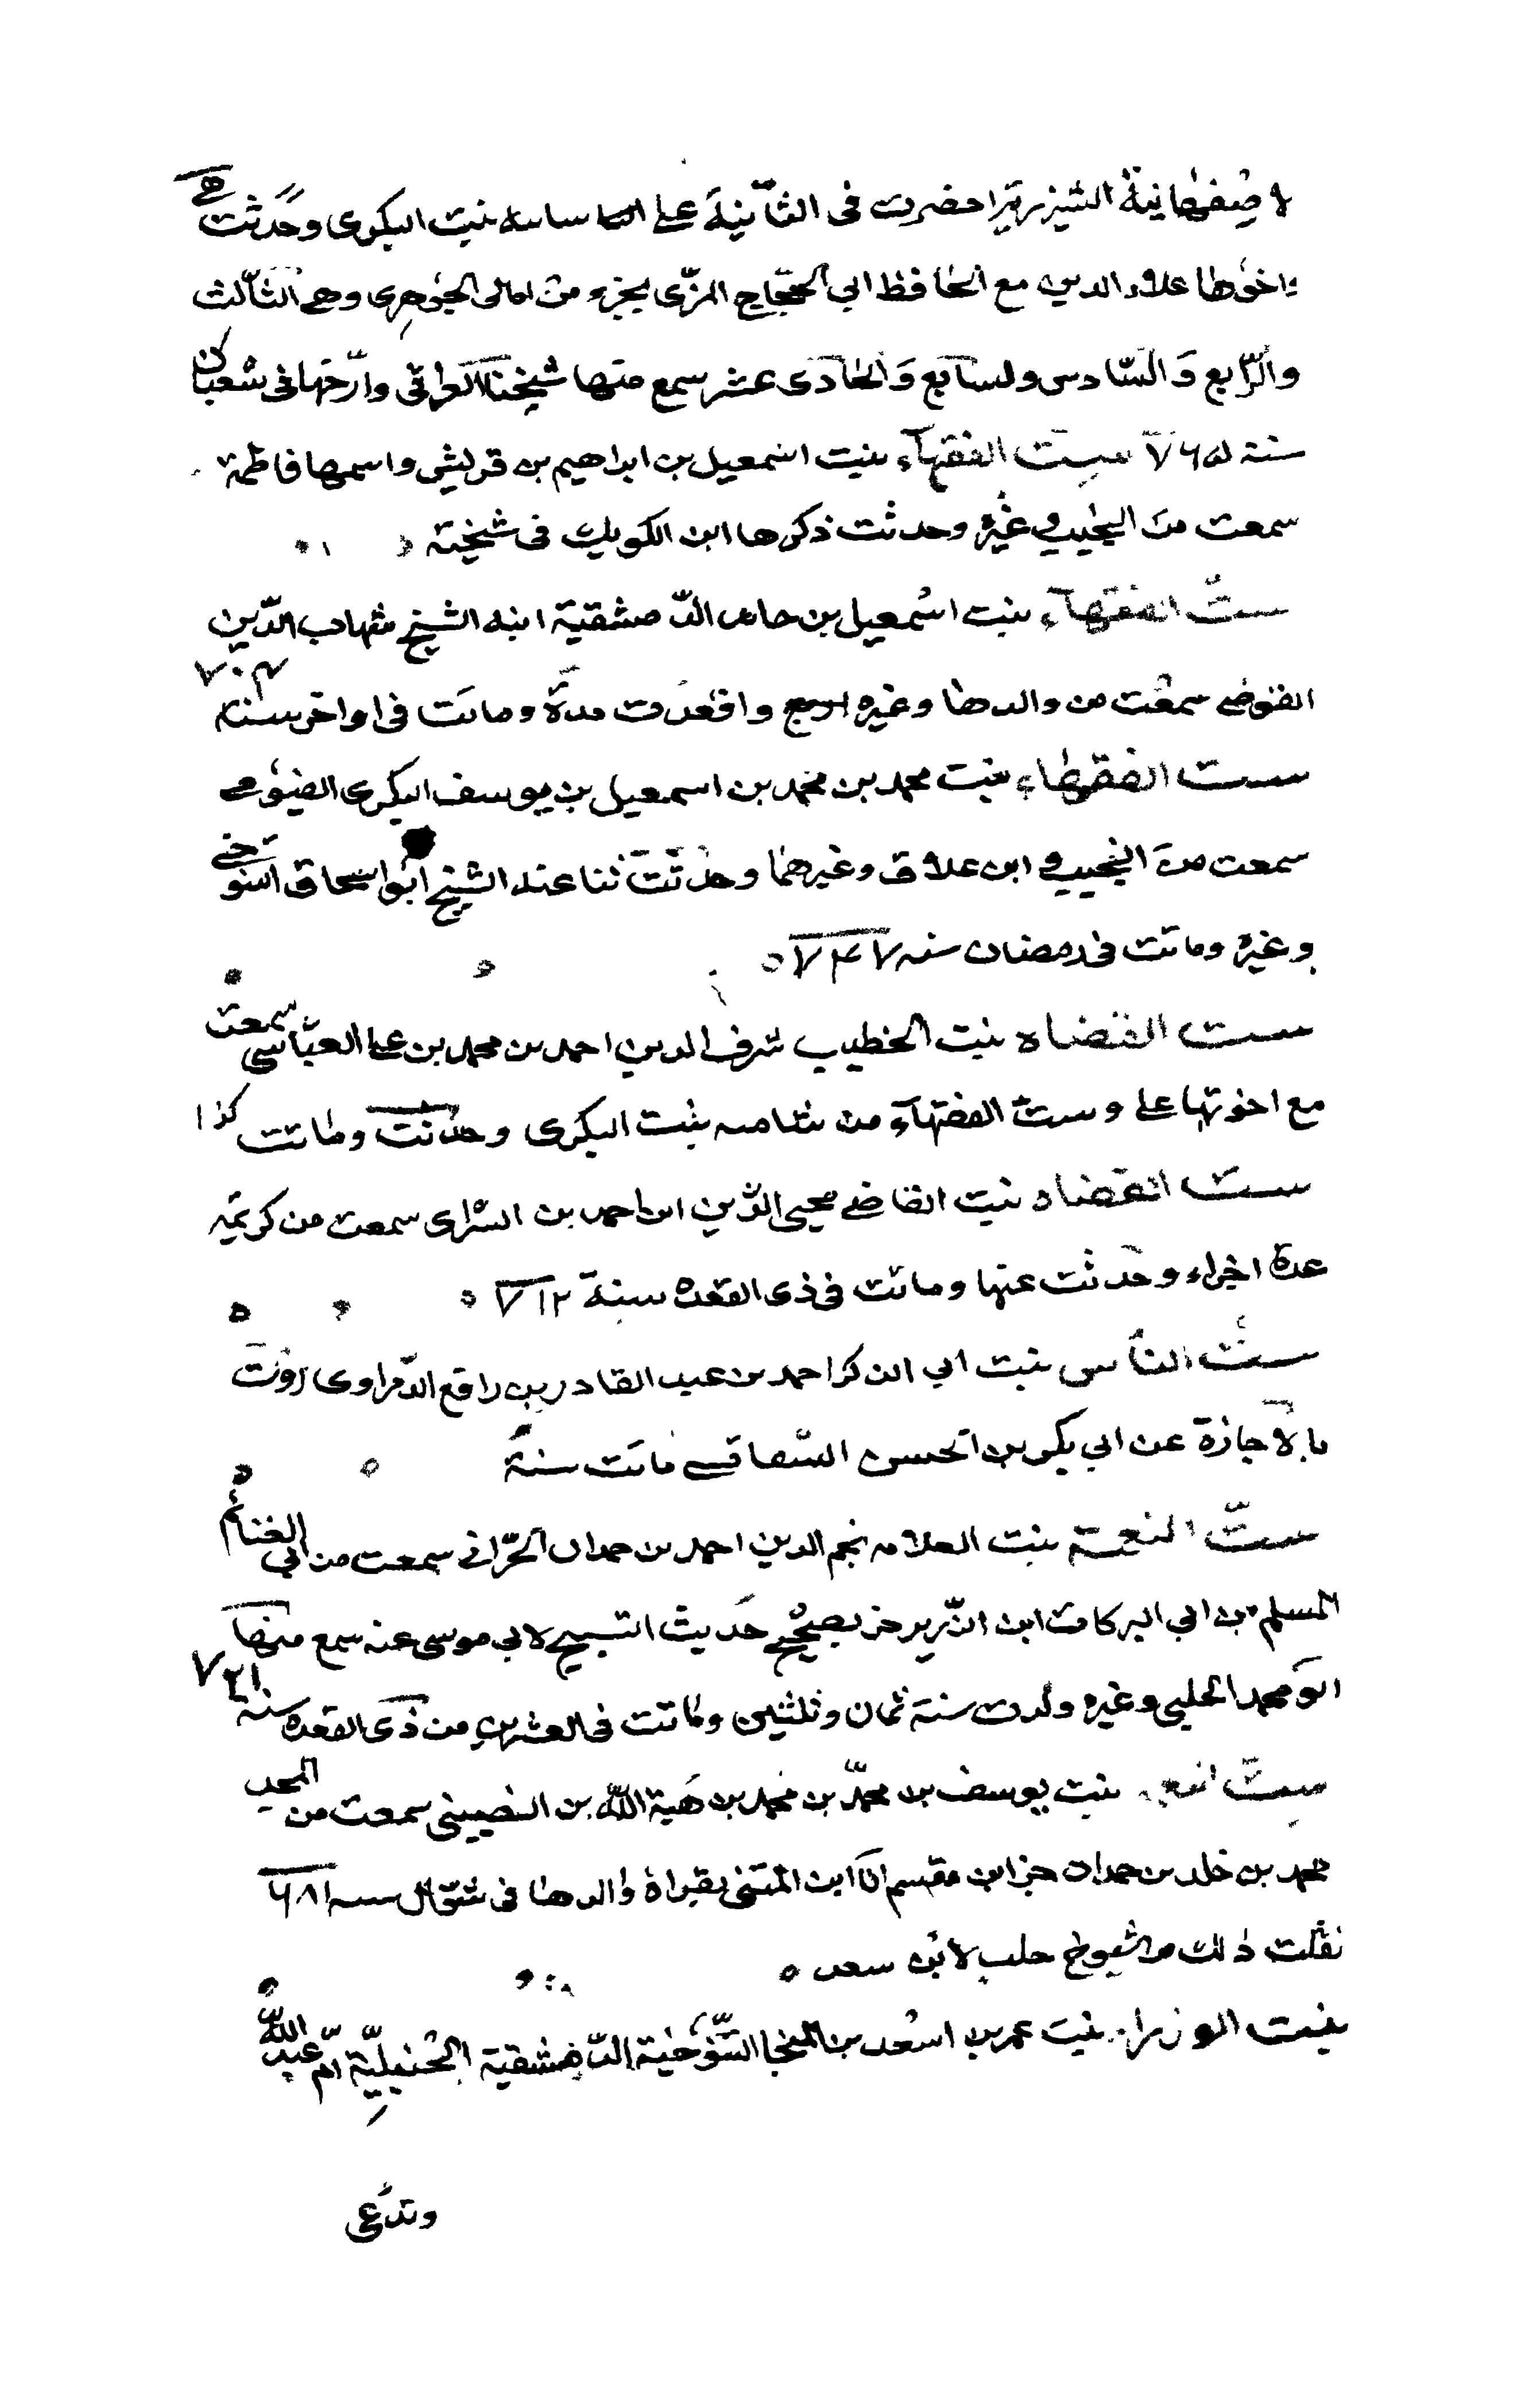 الاصفهانية الشيرزية احضرت فى الثانية على الساسه بنت البكرى وحدثت هى
واخوها علاء الدين مع الحافظ ابي الحجاج المزّى بجزء من امالى الجوهرى وهى الثالث
والرّابع وَالسّادس ولسابع وَالحادى عشر سمع منها شيخنا العراقى وارّخها فى شعبان
سنة ٧٦٥ ست الفقهآء بنت اسمعيل بن ابراهيم بن قريش واسمها فاطمة
سمعت من النجيب وغيره وحدثت ذكرها ابن الكويك فى شيخته
ستّ الفقهآء بنت اسمعيل بن حامد الدّمشقية ابنه الشيخ شهاب الدّين
القوصى سمعت من والدها وغيره واقعدت مدة وماتت فى اواخر سنة ٧٠٣
ست الفقهاء بنت محمد بن محمد بن اسمعيل بن يوسف البكرى الفيومى
سمعت من النجيب و ابن علاق وغيرهما وحدثت ثنا عنه الشيخ ابو اسحاق التنوخى
وغيره وماتت فى رمضان سنه ٧٤٧ ٥
ست القضاه بنت الخطيب شرف الدين احمد بن محمد بن على العبّاسى سمعت
مع اخوتها على وست الفقهآء من شاميه بنت البكرى وحدثت وماتت كذا
ست القضاه بنت القاضى محيى الدّين ابن احمد بن الشرازى سمعت من كريمه
عدة اجزاء وحدثت عنها وماتت فى ذى القعده سنة ٧١٢ ٥
ست الناس بنت ابي احمد بن عبد القادر بن رافع الدّمراوى روت
بالاجازة عن ابي بكر بن الحسن السفاقسى ماتت سنة
ستّ النعمة بنت العلامه نجم الدين احمد بن حمدان الحرّانى سمعت من ابي الغنائم
المسلم بن ابي البركات ابن جزء بصحيح حديث التسبيح لابي موسى عنه سمع منها
ابو محمد الحلبى وغيره ولدت سنة ثمان وثلثين وماتت فى العشرين من ذى القعده سنة ٧٢١
ست بنت يوسف بن محمّد بن محمد بن هبة اللّه بن النصيبى سمعت من المجد
محمد بن خلد بن حمدان جزء ابن مقسم انا ابن المتنى بقراة والدها فى شوّال سنه ٦٨١
نقلت ذلك من شيوخ حلب لابن سعد ٥
بنت الوزراء بنت عمر بن اسعد بن المنجا التّنوخية الدّمشقية الحنبليّة امّ عبد اللّه
وتدعى